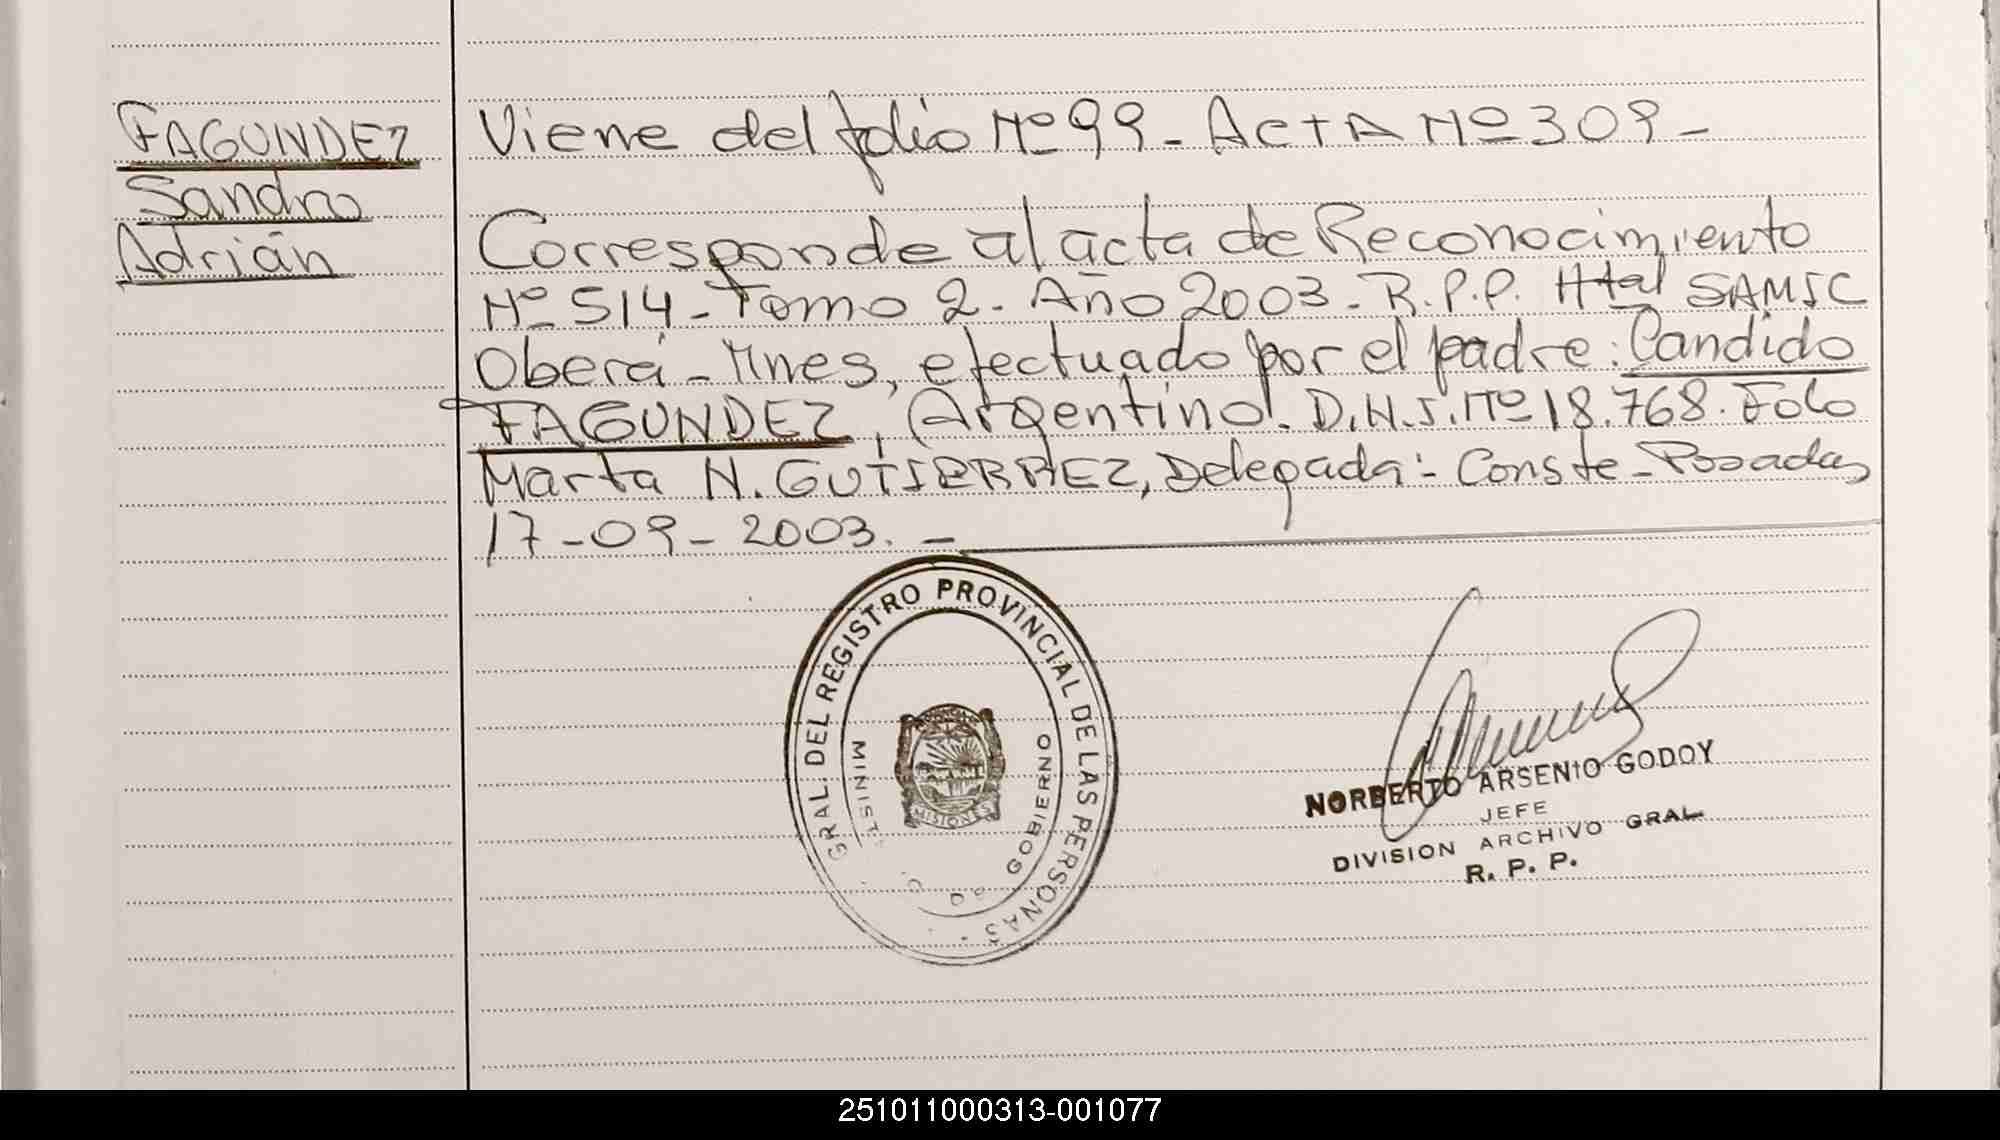 FAGUNDEZ
Sandro
Adrián
Viene del folio Nº 99 - ActA Nº 309 -
Corresponde al acta de Reconocimiento
Nº 514 - Tomo 2 - Año 2003 - R.P.P. Htal SAMIC
Oberá - Mnes, efectuado por el padre: Candido
FAGUNDEZ, (Argentino). D.N.I. Nº 18.768. Fdo
Marta N. GUTIERREZ, Delegada: - Conste - Posadas,
17-09-2003. -
GRAL. DEL REGISTRO PROVINCIAL DE LAS PERSONAS
GOBIERNO
MISIONES
NORBERTO ARSENIO GODOY
JEFE
DIVISION ARCHIVO GRAL.
R. P. P.
251011000313-001077